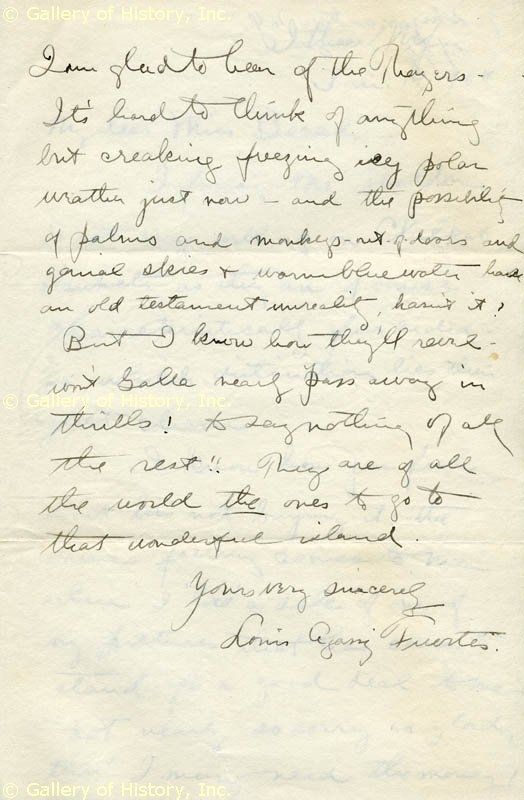 © Gallery of History, Inc.
I am glad to hear of the Thayers -
It's hard to think of anything
but creaking freezing icy polar
weather just now - and the possibility
of palms and monkeys-out-of-doors and
genial skies & warm blue water has
an old testament unreality, hasn't it?
But I know how they'll revel -
won't Galla nearly pass away in
© Gallery of History, Inc.
thrills! to say nothing of all
the rest!! They are of all
the world the ones to go to
that wonderful island.
Yours very sincerely
Louis Agassiz Fuertes.
© Gallery of History, Inc.